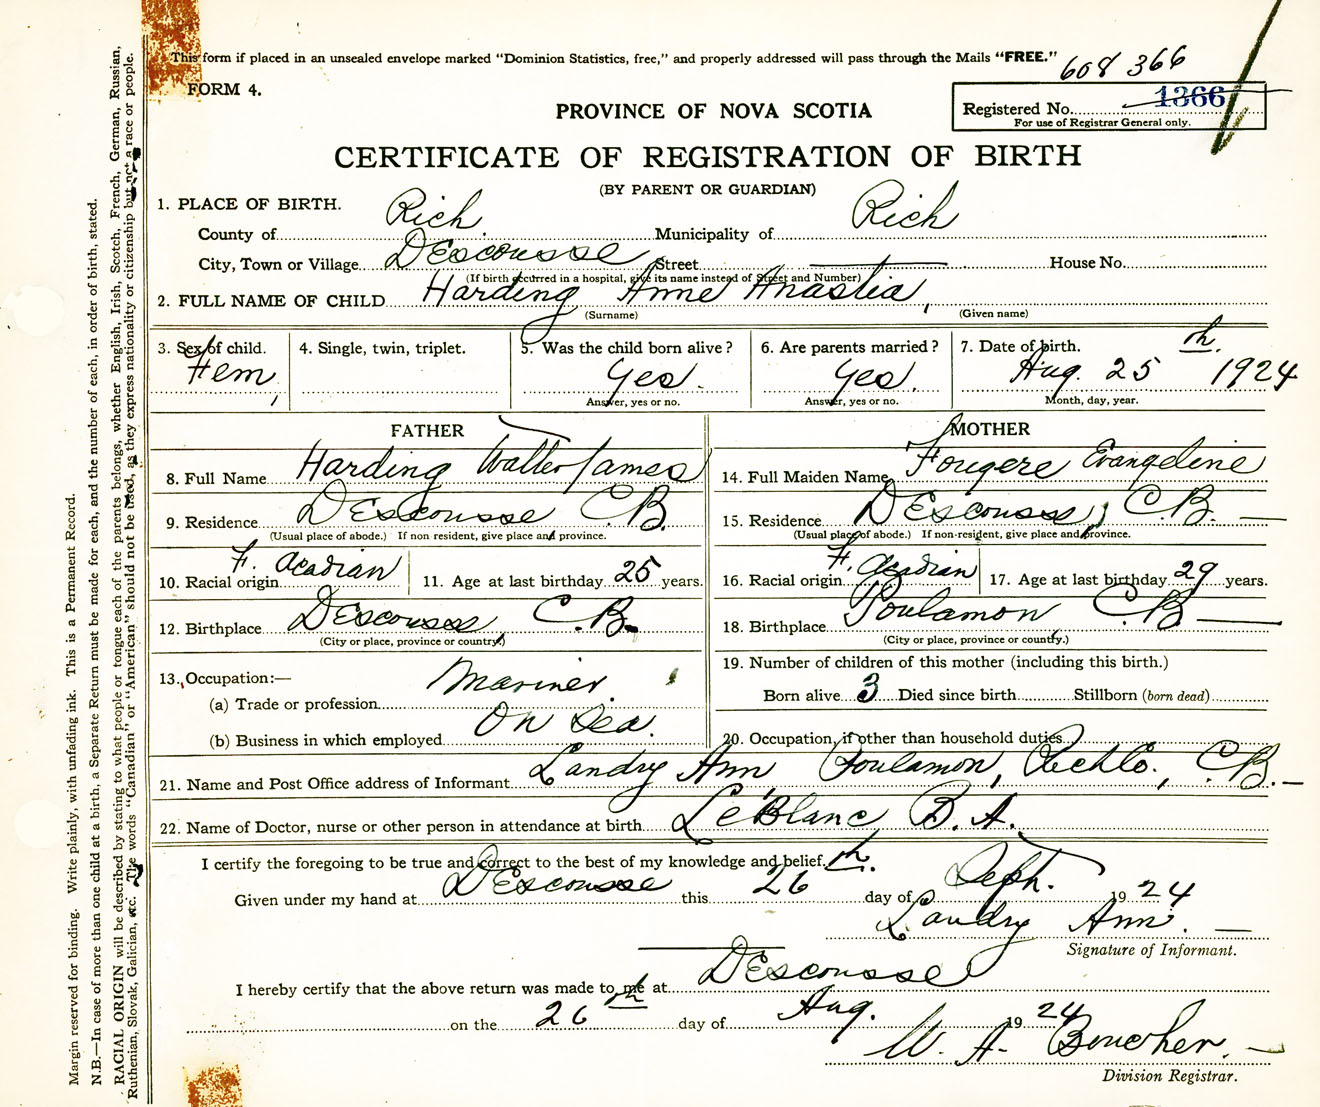 This form if placed in an unsealed envelope marked "Dominion Statistics, free," and properly addressed will pass through the Mails "FREE."
608 366
FORM 4.
PROVINCE OF NOVA SCOTIA
Registered No. 1366
For use of Registrar General only.
CERTIFICATE OF REGISTRATION OF BIRTH
(BY PARENT OR GUARDIAN)
1. PLACE OF BIRTH.
County of Rich. Municipality of Rich
City, Town or Village DEscousse Street House No.
(If birth occurred in a hospital, give its name instead of Street and Number)
2. FULL NAME OF CHILD Harding Anne Anastia,
(Surname) (Given name)
3. Sex of child. 4. Single, twin, triplet. 5. Was the child born alive? 6. Are parents married? 7. Date of birth.
Fem, Yes. Yes. Aug. 25th 1924
Answer, yes or no. Answer, yes or no. Month, day, year.
FATHER MOTHER
8. Full Name Harding Walter James 14. Full Maiden Name Fougere Evangeline
9. Residence DEscousse C.B. 15. Residence DEscousse, C.B.
(Usual place of abode.) If non resident, give place and province. (Usual place of abode.) If non-resident, give place and province.
10. Racial origin F. Acadian 11. Age at last birthday 25 years. 16. Racial origin F. Acadian 17. Age at last birthday 29 years.
12. Birthplace DEscousse C.B. 18. Birthplace Poulamon C.B.
(City or place, province or country.) (City or place, province or country.)
13. Occupation:— 19. Number of children of this mother (including this birth.)
(a) Trade or profession Mariner. Born alive 3 Died since birth Stillborn (born dead)
(b) Business in which employed On Sea. 20. Occupation, if other than household duties
21. Name and Post Office address of Informant Landry Ann Poulamon, Richⅼ Co., C.B.
22. Name of Doctor, nurse or other person in attendance at birth LeBlanc, B. A.
I certify the foregoing to be true and correct to the best of my knowledge and belief.
Given under my hand at DEscousse this 26th day of Seph. 1924
Landry Ann.
Signature of Informant.
I hereby certify that the above return was made to me at DEscousse
on the 26th day of Aug. 1924
W. A. Boucher.
Division Registrar.
Margin reserved for binding. Write plainly, with unfading ink. This is a Permanent Record.
N.B.—In case of more than one child at a birth, a Separate Return must be made for each, and the number of each, in order of birth, stated.
RACIAL ORIGIN will be described by stating to what people or tongue each of the parents belongs, whether English, Irish, Scotch, French, German, Russian,
Ruthenian, Slovak, Galician, etc. The words "Canadian" or "American" should not be used, as they express nationality or citizenship but not a race or people.